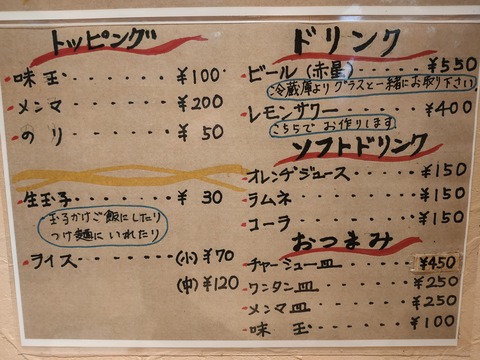 トッピング
味玉・・・・・・・¥100
メンマ・・・・・・¥200
のり・・・・・・¥50
生玉子・・・・・・¥30
玉子かけご飯にしたり
つけ麺にいれたり
ライス・・・・・・(小)¥70
(中)¥120
ドリンク
ビール(赤星)・・・・¥550
冷蔵庫よりグラスと一緒にお取り下さい
レモンサワー・・・・¥400
こちらでお作りします
ソフトドリンク
オレンヂジュース・・・・¥150
ラムネ・・・・・・¥150
コーラ・・・・・・¥150
おつまみ
チャーシュー皿・・・・¥450
ワンタン皿・・・・・¥250
メンマ皿・・・・・¥250
味玉・・・・・・¥100